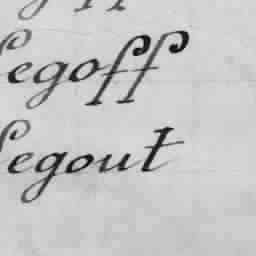 Segoff
Segout